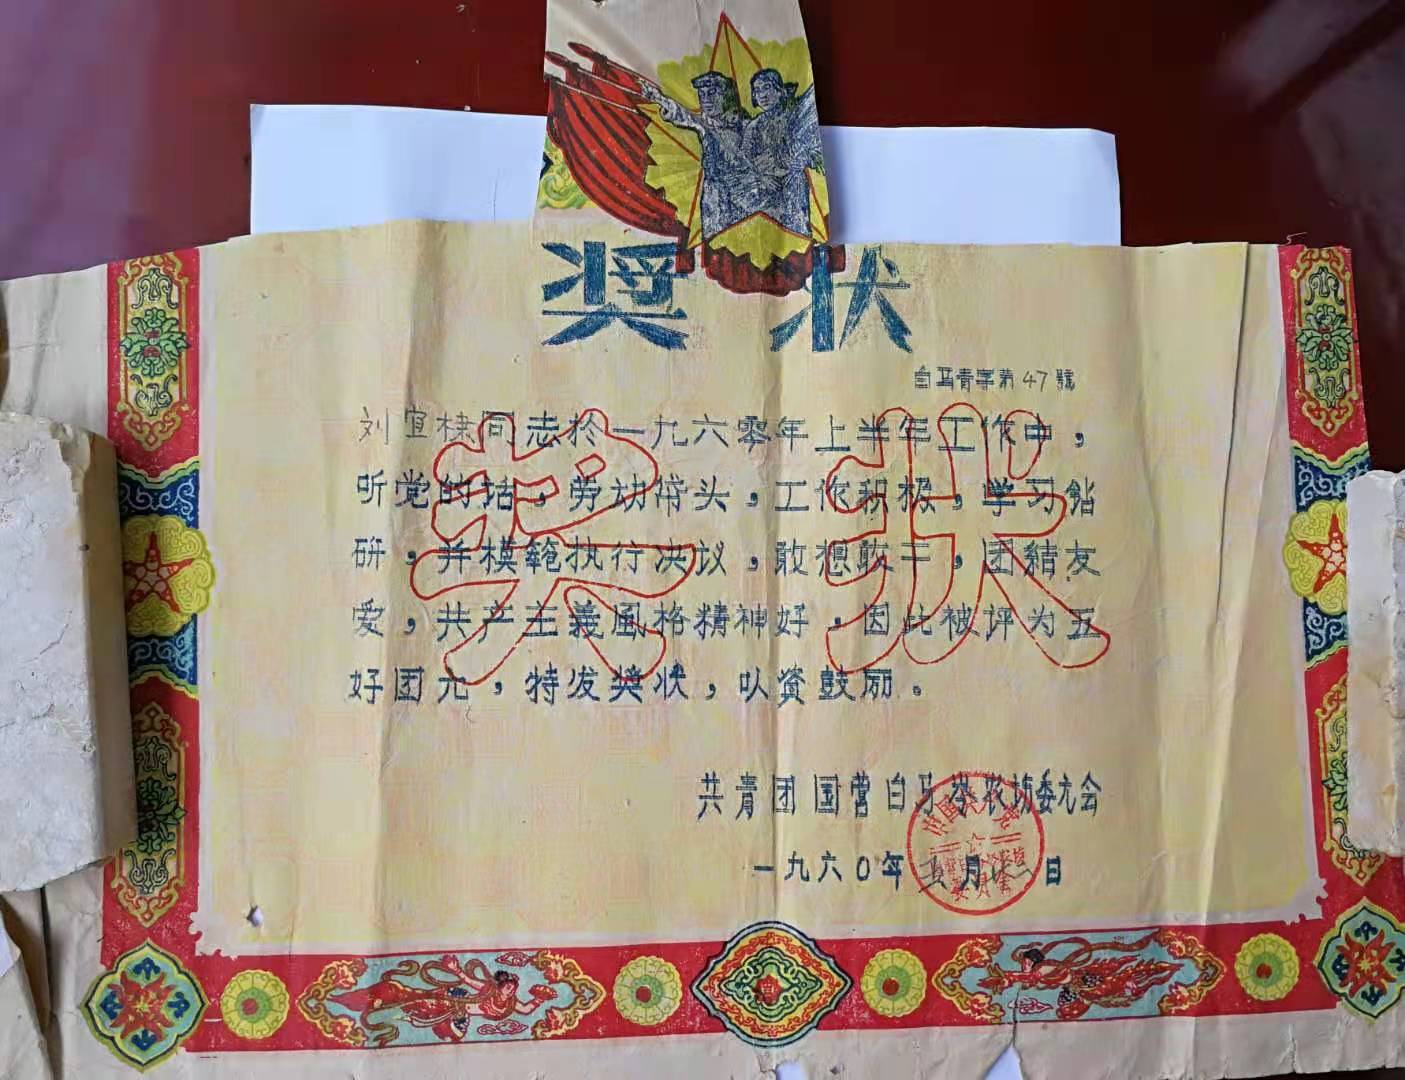 奖状
白马青字第47號
刘宜棣同志於一九六零年上半年工作中，
听党的话，劳动带头，工作积极，学习鉆
研，并模範执行决议，敢想敢干，团結友
爱，共产主義風格精神好，因此被评为五
好团元，特发奖状，以资鼓励。
奖状
共青团国营白马岺农场委九会
一九六〇年五月 日